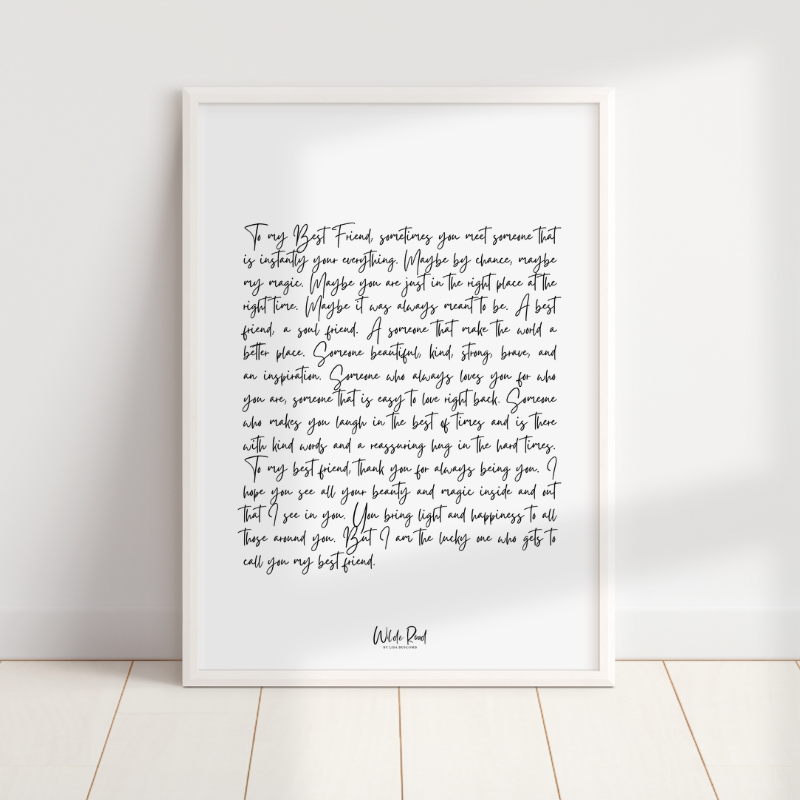 To my Best Friend, sometimes you meet someone that
is instantly your everything. Maybe by chance, maybe
my magic. Maybe you are just in the right place at the
right time. Maybe it was always meant to be. A best
friend, a soul friend. A someone that make the world a
better place. Someone beautiful, kind, strong, brave, and
an inspiration. Someone who always loves you for who
you are, someone that is easy to love right back. Someone
who makes you laugh in the best of times and is there
with kind words and a reassuring hug in the hard times.
To my best friend, thank you for always being you. I
hope you see all your beauty and magic inside and out
that I see in you. You bring light and happiness to all
those around you. But I am the lucky one who gets to
call you my best friend.
Wilde Road
BY LISA